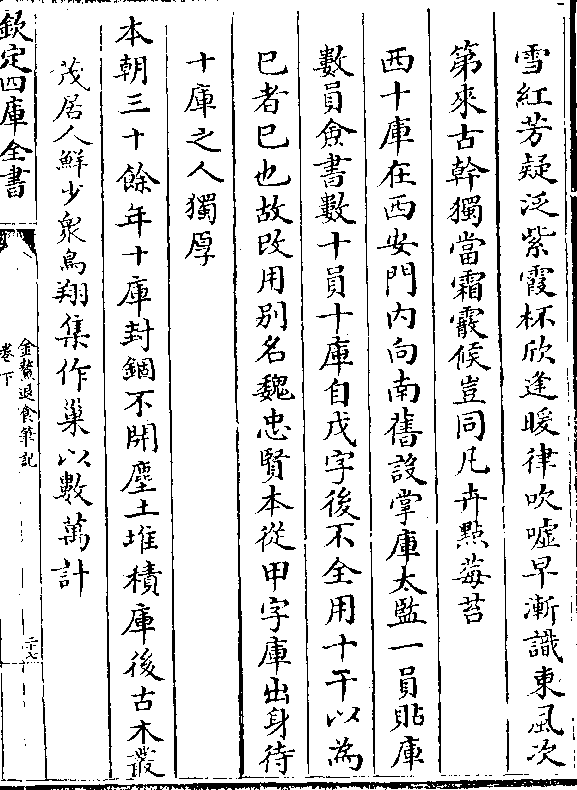 雪紅芳疑泛紫霞杯欣逢暖律吹噓早漸識東風次
第來古幹獨當霜霰候豈同凡卉點莓苔
西十庫在西安門内向南舊設掌庫太監一員貼庫
數員僉書數十員十庫自戊字後不全用十干以為
巳者巳也故改用别名魏忠賢本從甲字庫出身待
十庫之人獨厚
本朝三十餘年十庫封錮不開塵土堆積庫後古木叢
茂居人鮮少衆鳥翔集作巢以數萬計
欽定四庫全書
金鰲退食筆記
卷下
二十六